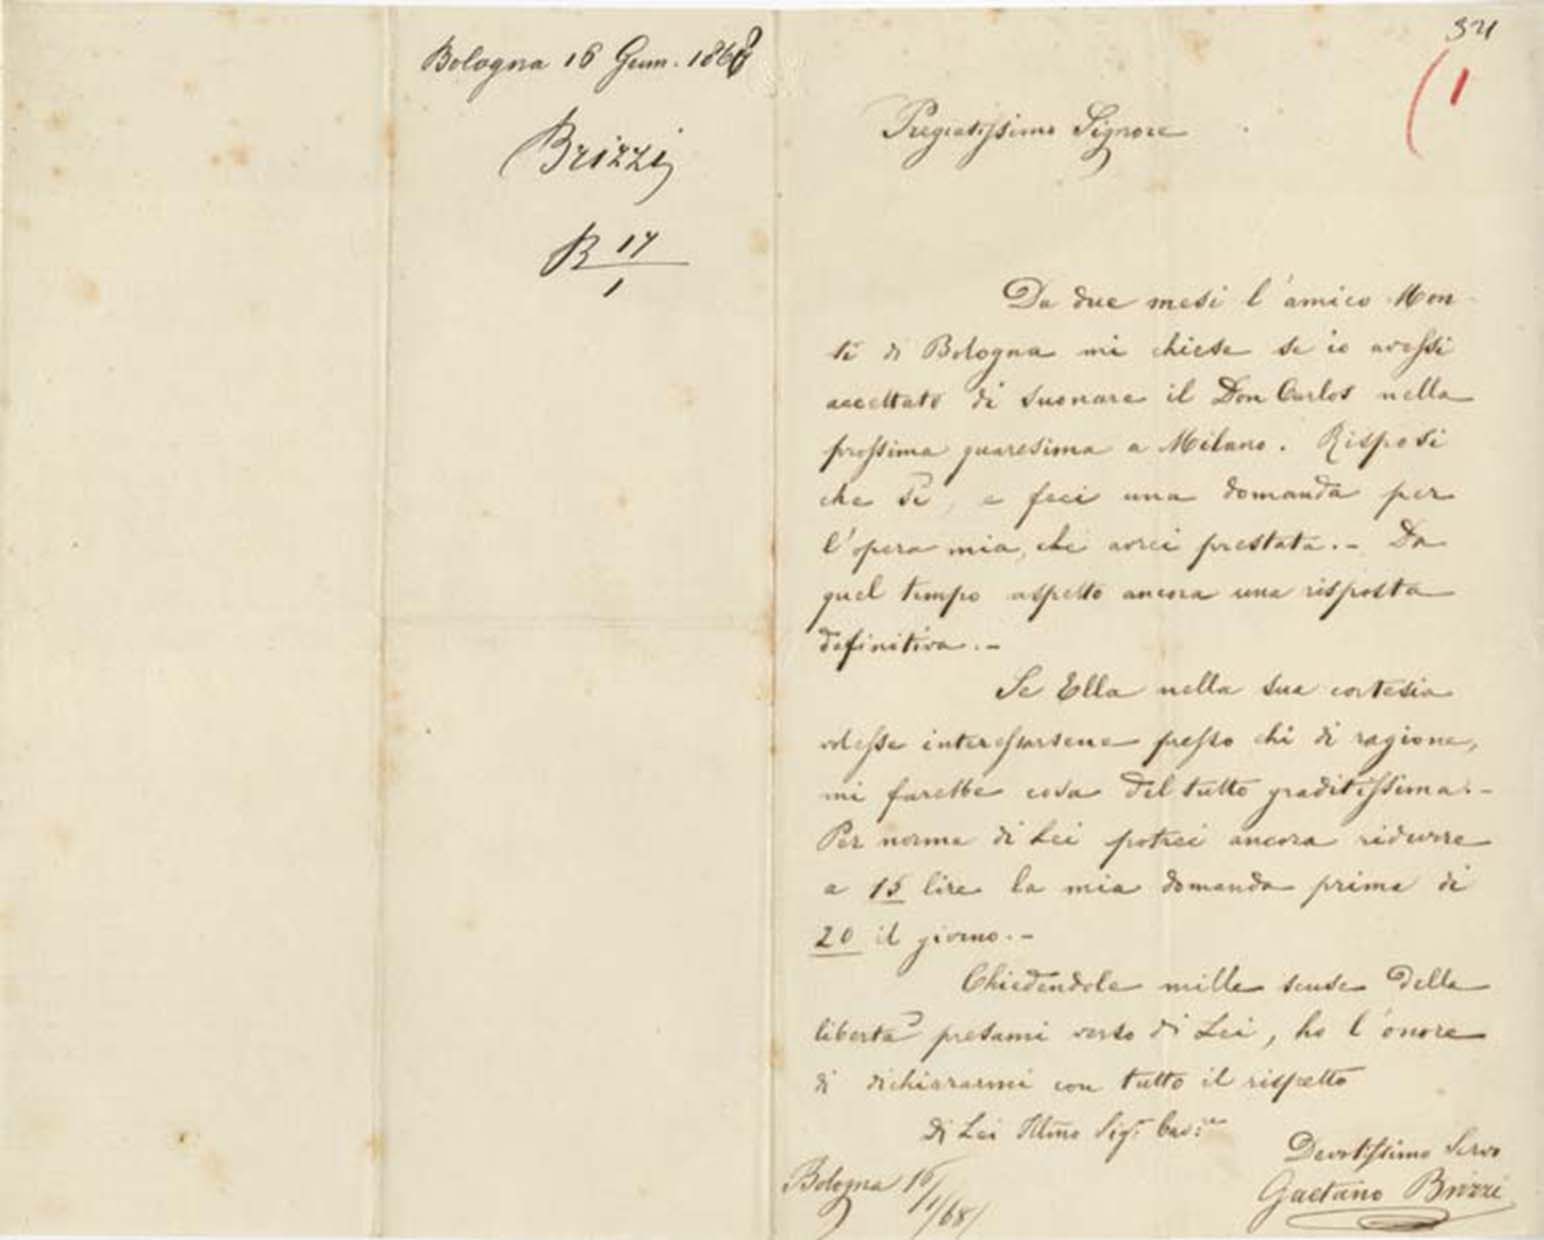 Bologna 16 Genn. 1868
Brizzi
R 17
1
34
1
Pregiatissimo Signore
Da due mesi l'amico Mon-
ti di Bologna mi chiese se io avessi
accettato di suonare il Don Carlos nella
prossima quaresima a Milano. Risposi
che sì, e feci una domanda per
l'opera mia, che avrei prestata.- Da
quel tempo aspetto ancora una risposta
definitiva.-
Se Ella nella sua cortesia
volesse interessarsene presso chi di ragione,
mi farebbe cosa del tutto graditissima.-
Per norma di Lei potrei ancora ridurre
a 15 lire la mia domanda prima di
20 il giorno.-
Chiedendole mille scuse della
libertà presami verso di Lei, ho l'onore
di dichiararmi con tutto il rispetto
di Lei Illmo Sigr Cav:re
Devotissimo Servo
Gaetano Brizzi
Bologna 16/1/68/